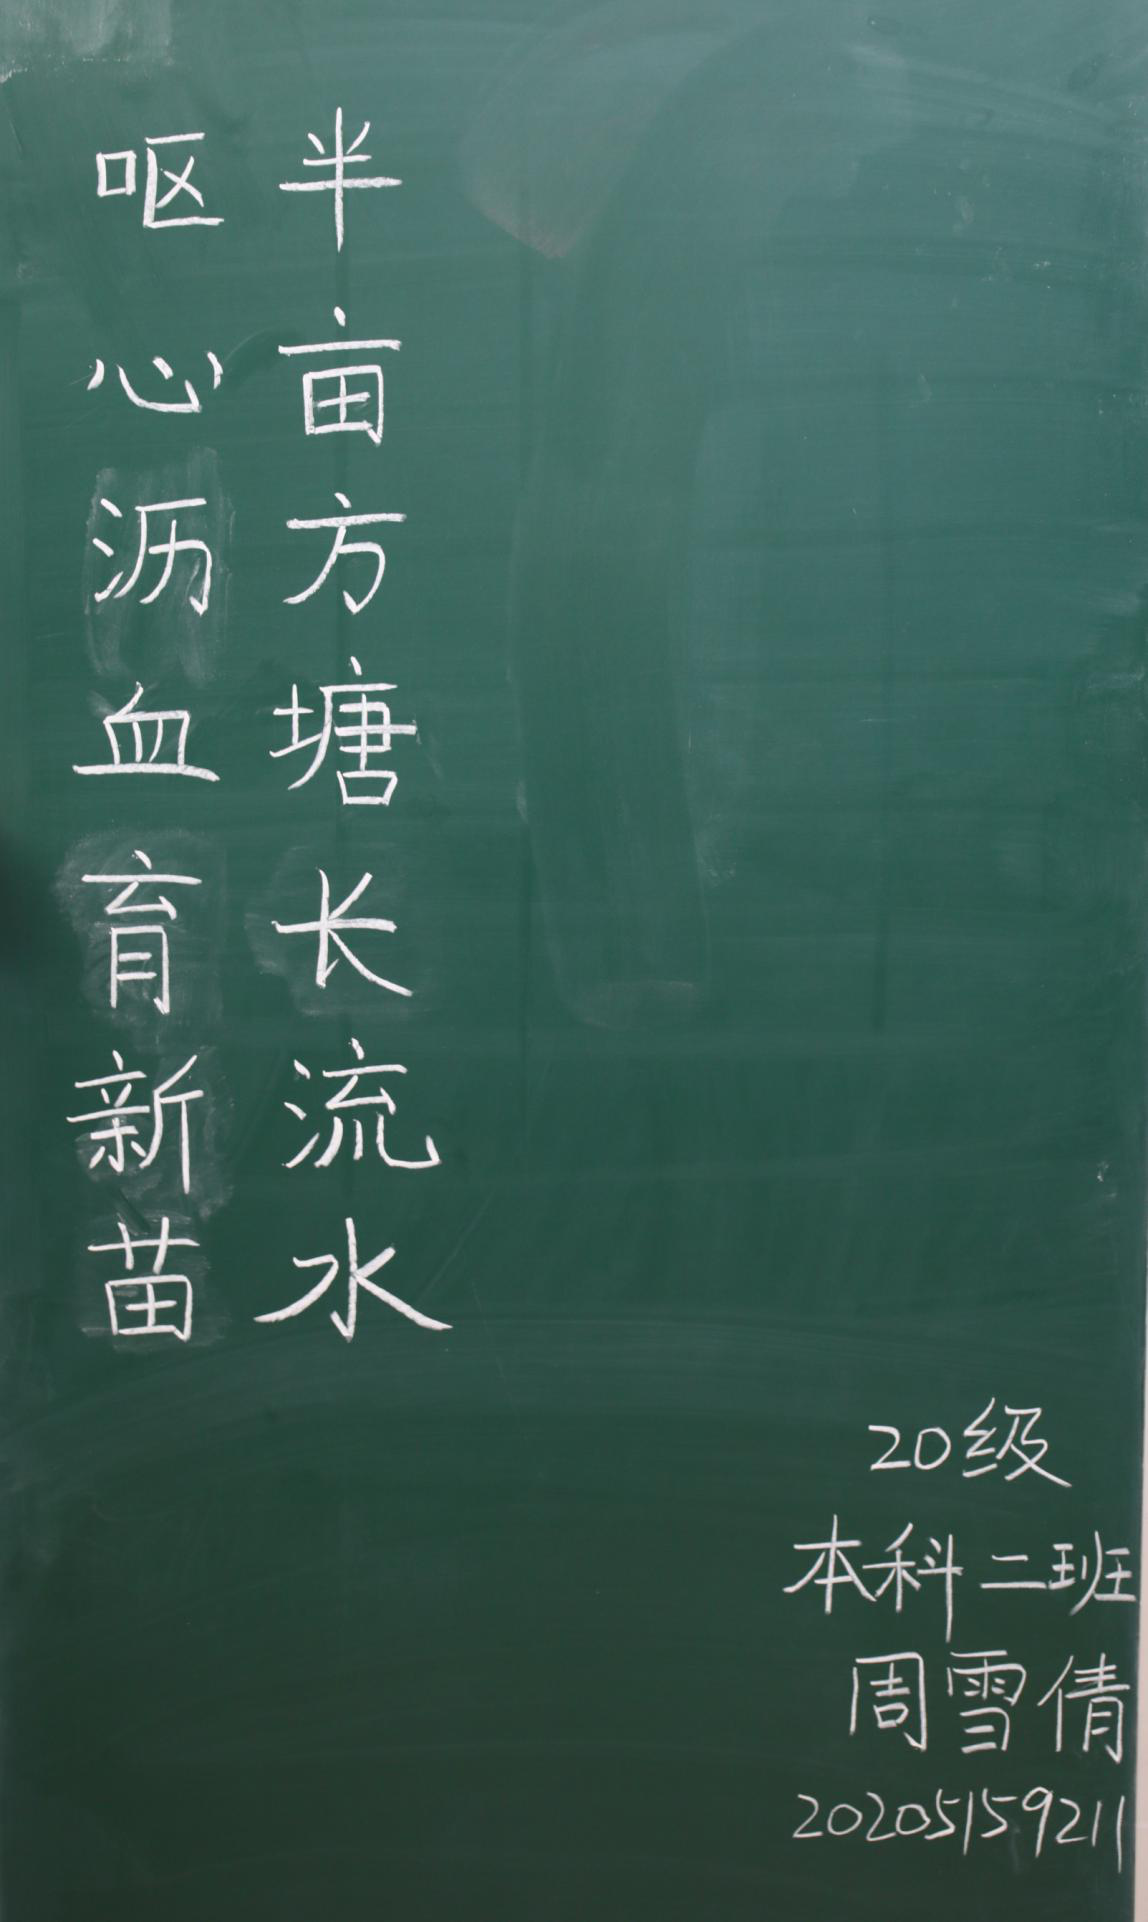 半亩方塘长流水
呕心沥血育新苗
20级
本科二班
周雪倩
20205159211